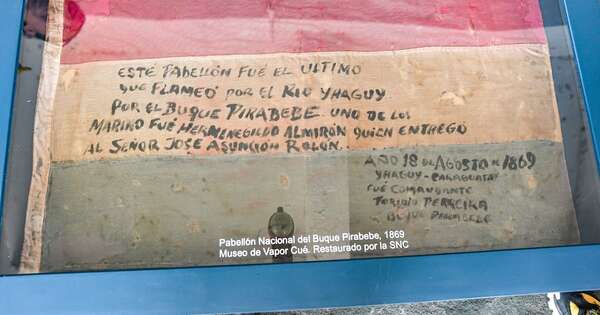 ESTE PABELLÓN FUÉ EL ULTIMO
QUE FLAMEÓ POR EL RIO YHAGUY.
POR EL BUQUE PIRABEBE. UNO DE LOS
MARINO FUÉ HERMENEGILDO ALMIRÓN QUIEN ENTREGÓ
AL SEÑOR JOSÉ ASUNCIÓN ROLON.
AÑO 18 DE AGOSTO DE 1869
YHAGUY - CARAGUATAY
FUÉ COMANDANTE
TORIBIO PEREIRA
BUQUE PIRABEBE
Pabellón Nacional del Buque Pirabebe, 1869
Museo de Vapor Cué. Restaurado por la SNC